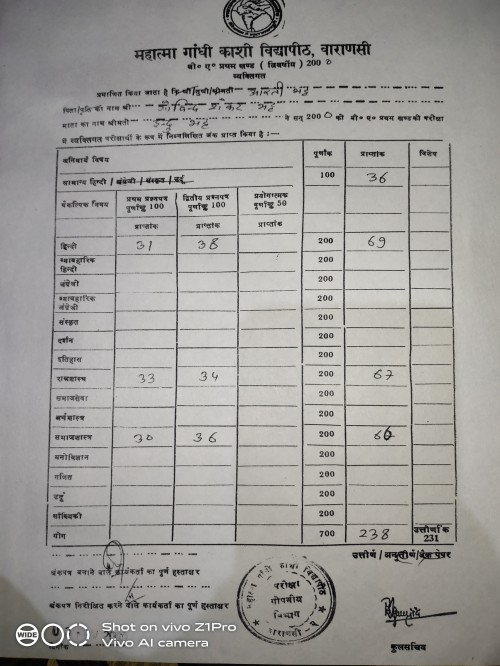 महात्मा गांधी काशी विद्यापीठ, वाराणसी
बी० ए० प्रथम खण्ड ( त्रिवर्षीय ) 2000
व्यक्तिगत
प्रमाणित किया जाता है कि श्री/सुश्री/श्रीमती आरती भट्ट
पिता/पति का नाम श्री गोविन्द शंकर भट्ट
माता का नाम श्रीमती इन्दु भट्ट ने सन् 2000 की बी० ए० प्रथम खण्ड की परीक्षा
में व्यक्तिगत परीक्षार्थी के रूप में निम्नलिखित अंक प्राप्त किया है :—
अनिवार्य विषय पूर्णांक प्राप्तांक विशेष
सामान्य हिन्दी / अंग्रेजी / संस्कृत / उर्दू 100 36
वैकल्पिक विषय प्रथम प्रश्नपत्र पूर्णाङ्क 100 द्वितीय प्रश्नपत्र पूर्णाङ्क 100 प्रयोगात्मक पूर्णाङ्क 50
प्राप्तांक प्राप्तांक प्राप्तांक
हिन्दी 31 38 200 69
व्यावहारिक हिन्दी 200
अंग्रेजी 200
व्यावहारिक अंग्रेजी 200
संस्कृत 200
दर्शन 200
इतिहास 200
राजशास्त्र 33 34 200 67
समाजसेवा 200
अर्थशास्त्र 200
समाजशास्त्र 30 36 200 66
मनोविज्ञान 200
गणित 200
उर्दू 200
सांख्यिकी 200
योग 700 238 उत्तीर्णांक 231
उत्तीर्ण / अनुत्तीर्ण / पेपर
अंकपत्र बनाने वाले कार्यकर्ता का पूर्ण हस्ताक्षर
अंकपत्र निरीक्षित करने वाले कार्यकर्ता का पूर्ण हस्ताक्षर
महात्मा गांधी काशी विद्यापीठ
परीक्षा
गोपनीय
विभाग
वाराणसी - २
कुलसचिव
WIDE
Shot on vivo Z1Pro
Vivo AI camera